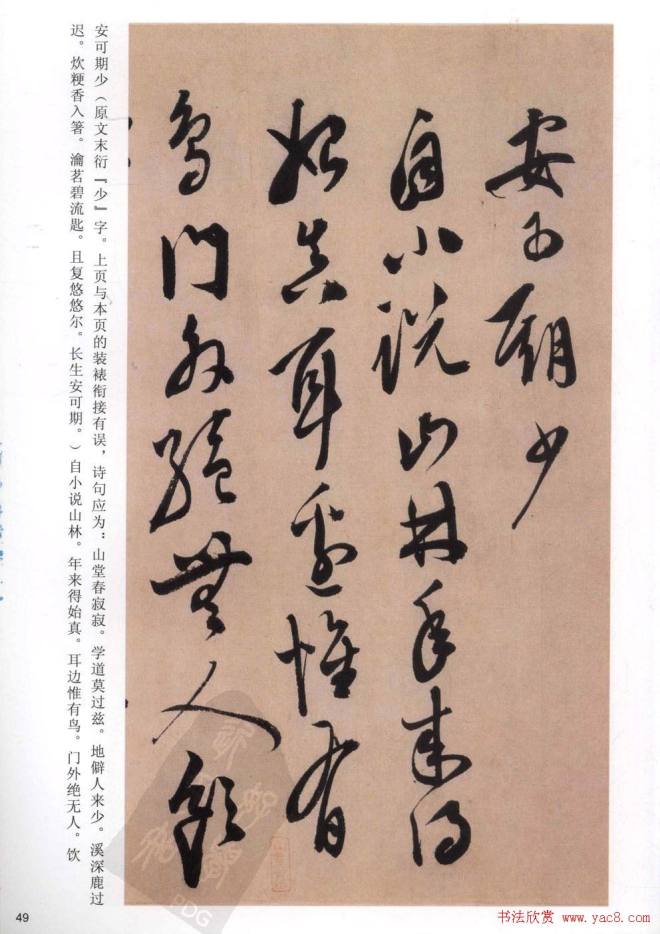 安可期少
自小说山林年来得
始真耳边惟有
鸟门外绝无人饮
安可期少（原文末衍『少』字。上页与本页的装裱衔接有误，诗句应为：山堂春寂寂。学道莫过兹。地僻人来少。溪深鹿过
迟。炊粳香入箸。瀹茗碧流匙。且复悠悠尔。长生安可期。）自小说山林。年来得始真。耳边惟有鸟。门外绝无人。饮
49
书法欣赏 www.yac8.com